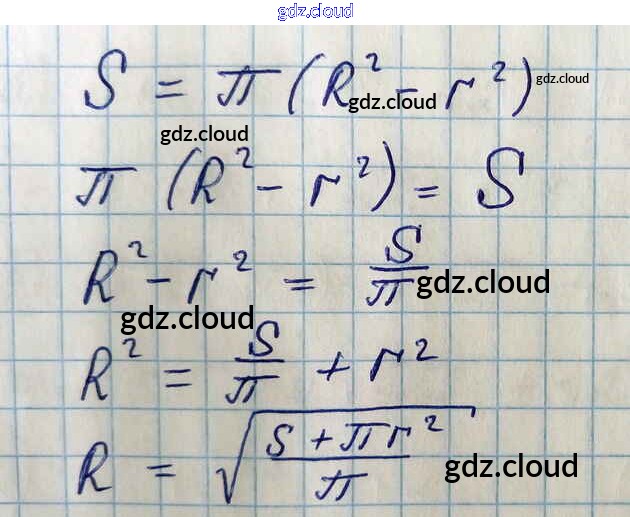 gdz.cloud
S = π(R² - r²) gdz.cloud
gdz.cloud
gdz.cloud
π (R² - r²) = S
R² - r² = S/π gdz.cloud
gdz.cloud
R² = S/π + r²
R = √((S + πr²)/π) gdz.cloud